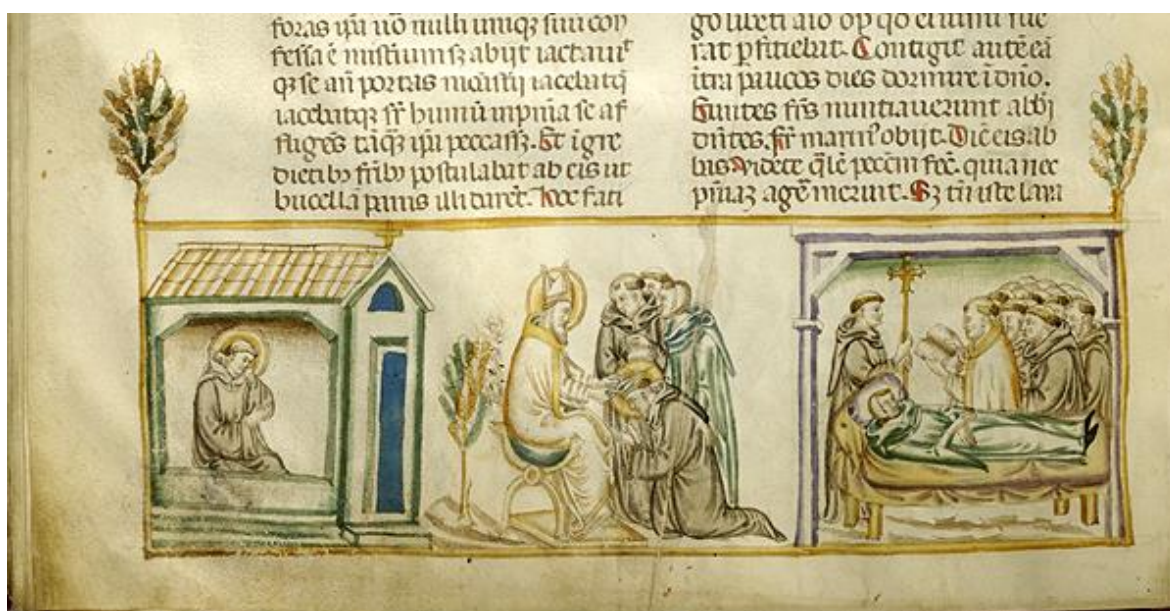 foras ipi uō nulli umqꝫ sui con
fessa ē misteriumsꝫ abijt iactauit
qꝫ se an̄ portas mōstij iacebatqꝫ
iacebatqꝫ sr̄ humū inpnia se af
fligēs tāqꝫ ipi peccassꝫ. Et īgre
dietibꝫ fr̄ibꝫ postulabat ab eis ut
bucellā panis illi daret. hec fati
aīo op qd ei fue
rat pficiebat. Contigit autē eā
ītra paucos dies dormire ī dn̄o.
Euntes fr̄s nuntiauerunt abbi
dn̄tes. fr̄ marinꝰ obijt. Dic̄ eis ab
bas Videte q̄lē pecc̄m fec̄. quia nec
pn̄iaꝫ agē̄ meruit. Sꝫ tn̄ iste lara